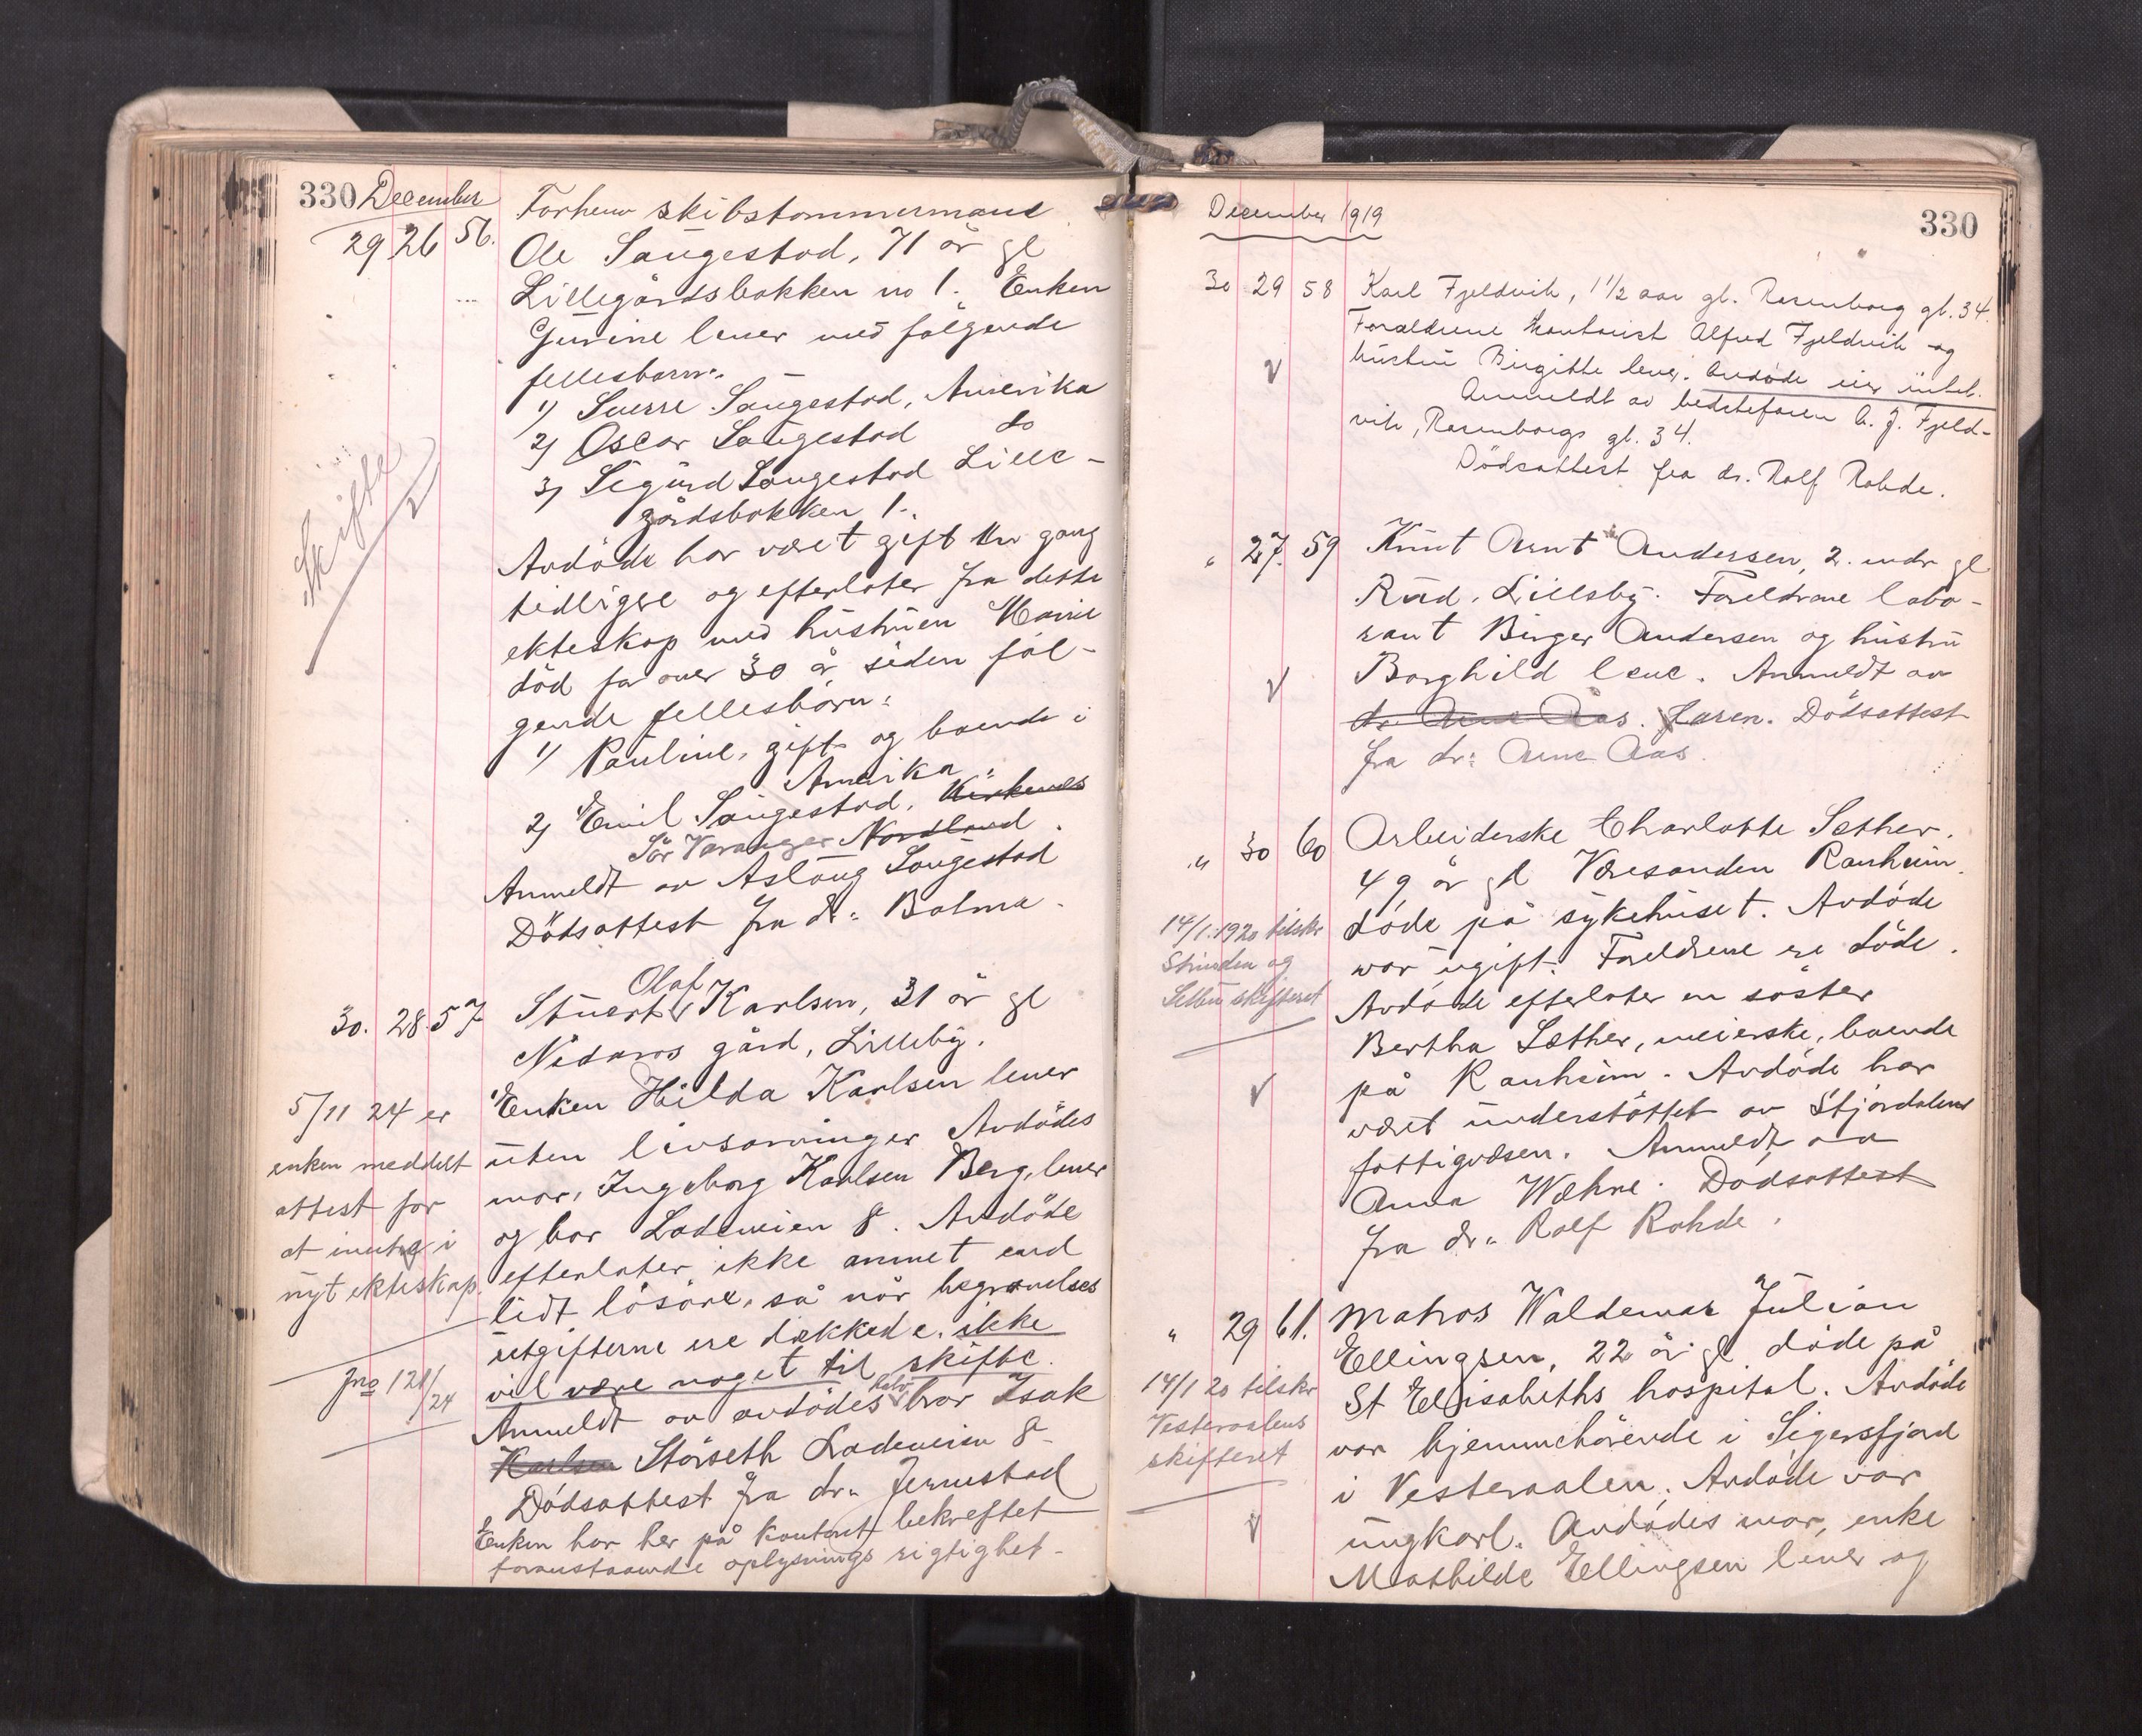 330 December
29 26 56. Forhenv skibstømmermand
Ole Saugestad, 71 år gl
Lillegårdsbakken no 1. Enken
Gurine lever med følgende
fellesbarn:
1) Sverre Saugestad, Amerika
2) Oscar Saugestad do
3) Sigurd Saugestad Lille-
gårdsbakken 1.
Skifte
Avdøde har været gift en gang
tidligere og efterlater fra dette
ekteskap med hustruen Marie
død for over 30 år siden føl-
gende fellesbørn:
1) Pauline, gift og boende i
Amerika.
2) Emil Saugestad, Kirkenes
Sør Varanger Nordland.
Anmeldt av Aslaug Saugestad
Dødsattest fra dr. Bolme.
Olaf
30. 28. 57 Stuert Karlsen, 31 år gl
Nidaros gård, Lilleby.
Enken Hilda Karlsen lever
uten livsarvinger Avdødes
mor, Ingeborg Karlsen Berg, lever
og bor Ladeveien 8. Avdøde
efterlater ikke annet end
lidt løsøre, så når begravelses
utgifterne ere dækkede, ikke
vil være noget til skifte.
Anmeldt av avdødes halvbror Isak
Karlsen Størseth Ladeveien 8
Dødsattest fra dr. Jernestad
Enken har her på kontoret bekreftet
foranstaaende oplysnings rigtighet.
5/11 24 er
enken meddelt
attest for
at inntræ i
nyt ekteskap.
Jno 121/24
December 1919
330
30 29 58 Karl Fjeldvik, 1 1/2 aar gl. Rosenborg gt. 34.
Forældrene kontorist Alfred Fjeldvik og
hustru Birgitte lever. Avdøde eier intet.
Anmeldt av bedstefaren A. J. Fjeld-
vik, Rosenborgs gt. 34.
Dødsattest fra dr. Rolf Rohde.
" 27. 59 Knut Arnt Andersen, 2. mdr gl
Rud. Lillsby. Foreldrene labo-
rant Birger Andersen og hustru
Borghild leve. Anmeldt av
dr Arne Aas. faren. Dødsattest
fra dr: Arne Aas.
" 30 60 Arbeiderske Charlotte Sæther.
49 år gl Væresanden Ranheim.
døde på sykehuset. Avdøde
var ugift. Foreldrene ere døde.
Avdøde efterlater en søster
Bertha Sæther, meierske, boende
på Ranheim. Avdøde har
været understøttet av Stjørdalens
fattigvæsen. Anmeldt av
Anna Wæhre. Dødsattest
fra dr. Rolf Rohde.
14/1.1920 tilskr
Strinden og
Selbu skifteret
" 29 61. Matros Waldemar Julian
Ellingsen, 22 år gl døde på
St Elisabeths hospital. Avdøde
var hjemmehørende i Sigersfjord
i Vesteraalen. Avdøde var
ungkarl. Avdødes mor, enke
Mathilde Ellingsen lever og
14/1 20 tilskr
Vesteraalens
skifteret